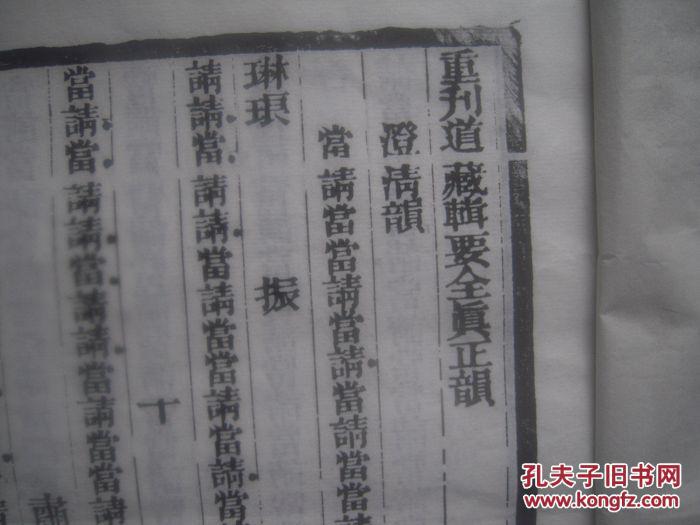 重刊道藏輯要全眞正韻
澄清韻
當請當當請當請當請當當當
琳琅 振
請請當請請當請當當請當請當
十
當請當請請當請請當請當當請
孔夫子旧书网
www.kongfz.com